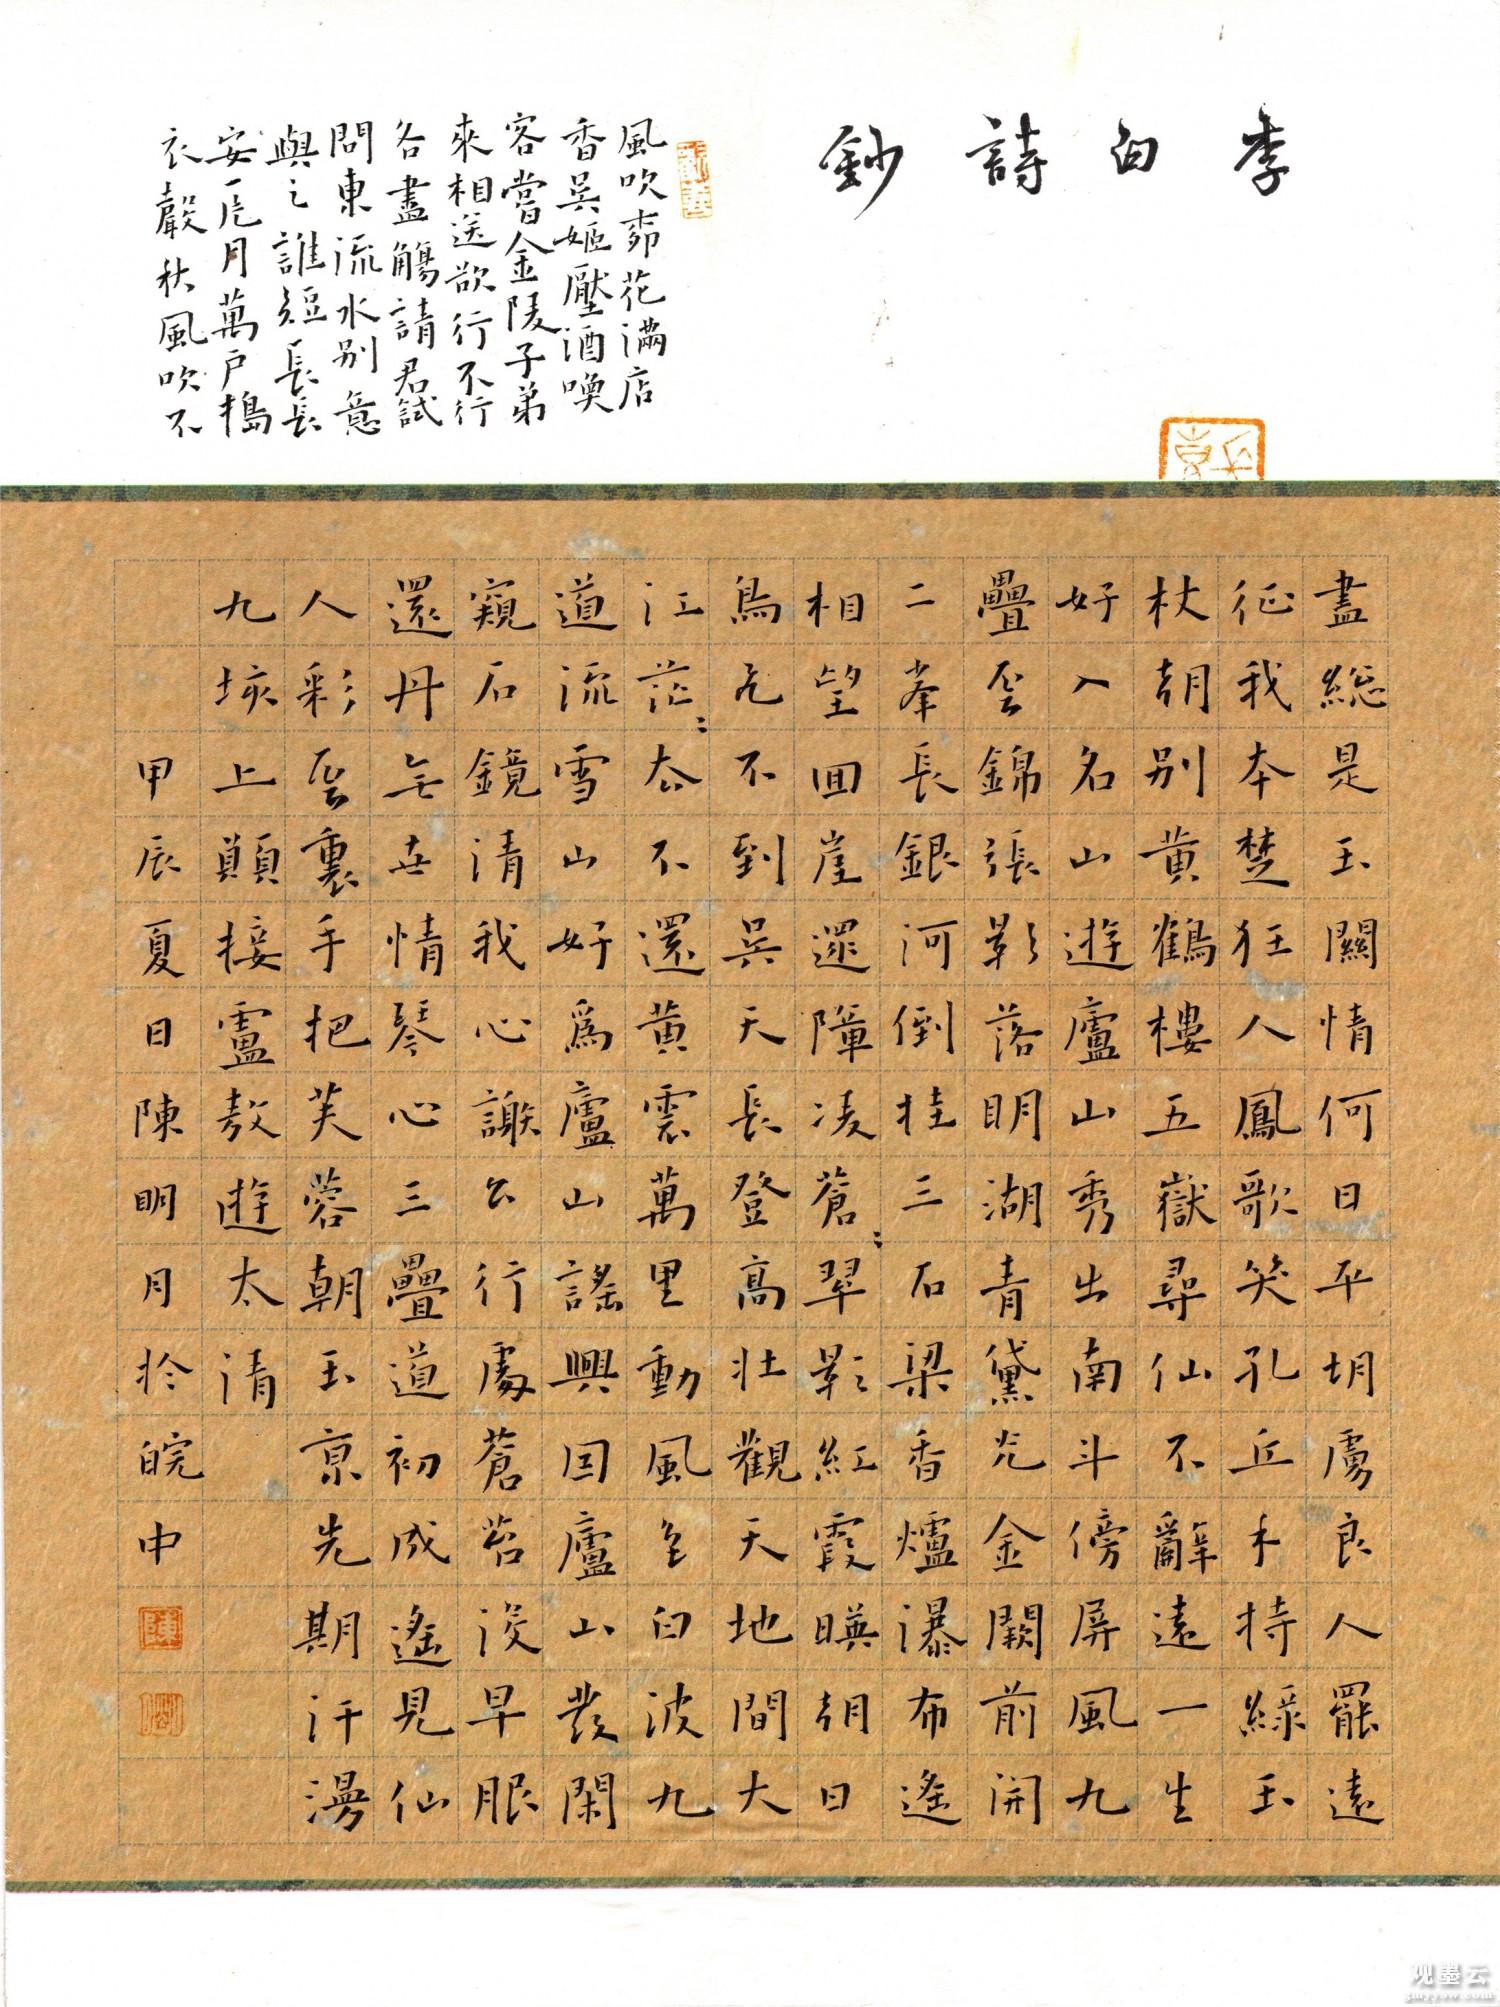 李白詩鈔
風吹柳花滿店
香吳姬壓酒喚
客嘗金陵子弟
來相送欲行不行
各盡觴請君試
問東流水別意
與之誰短長長
安一片月萬戶擣
衣聲秋風吹不
盡總是玉關情何日平胡虜良人罷遠
征我本楚狂人鳳歌笑孔丘手持綠玉
杖朝別黃鶴樓五嶽尋仙不辭遠一生
好入名山遊廬山秀出南斗傍屏風九
疊雲錦張影落明湖青黛光金闕前開
二峯長銀河倒挂三石梁香爐瀑布遙
相望回崖遝障凌蒼〻翠影紅霞暎朝日
鳥飛不到吳天長登高壯觀天地間大
江茫〻去不還黃雲萬里動風色白波九
道流雪山好為廬山謠興因廬山發閑
窺石鏡清我心謝公行處蒼苔沒早服
還丹無世情琴心三疊道初成遙見仙
人彩雲裏手把芙蓉朝玉京先期汗漫
九垓上願接盧敖遊太清
甲辰夏日陳明月於皖中
观墨云